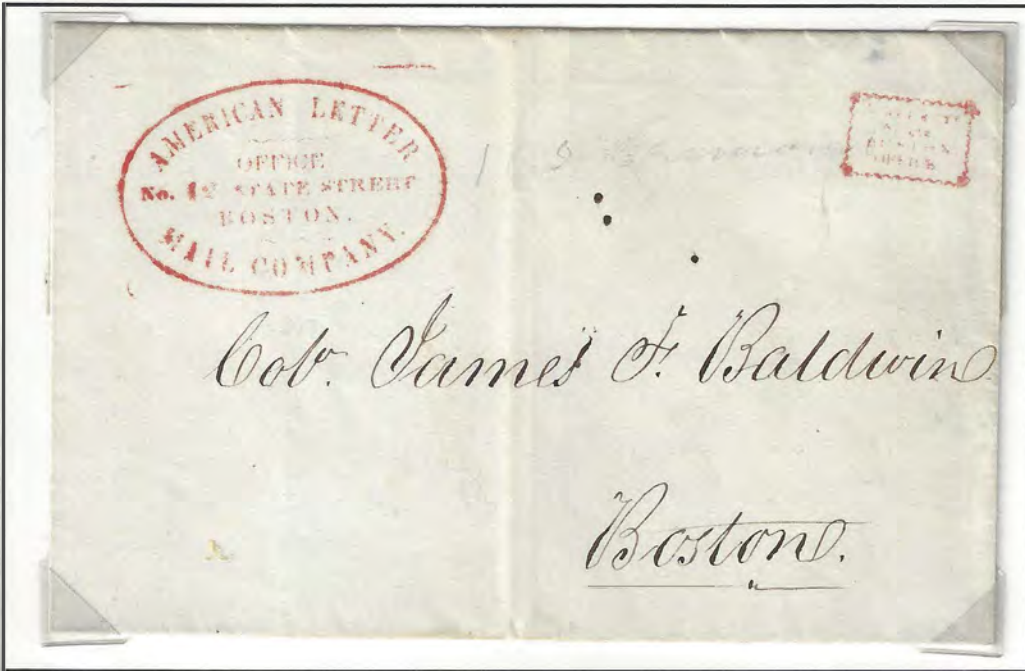 AMERICAN LETTER
OFFICE
No. 12 STATE STREET
BOSTON.
MAIL COMPANY.
BOSTON
OFFICE
Col. James F. Baldwin
Boston.